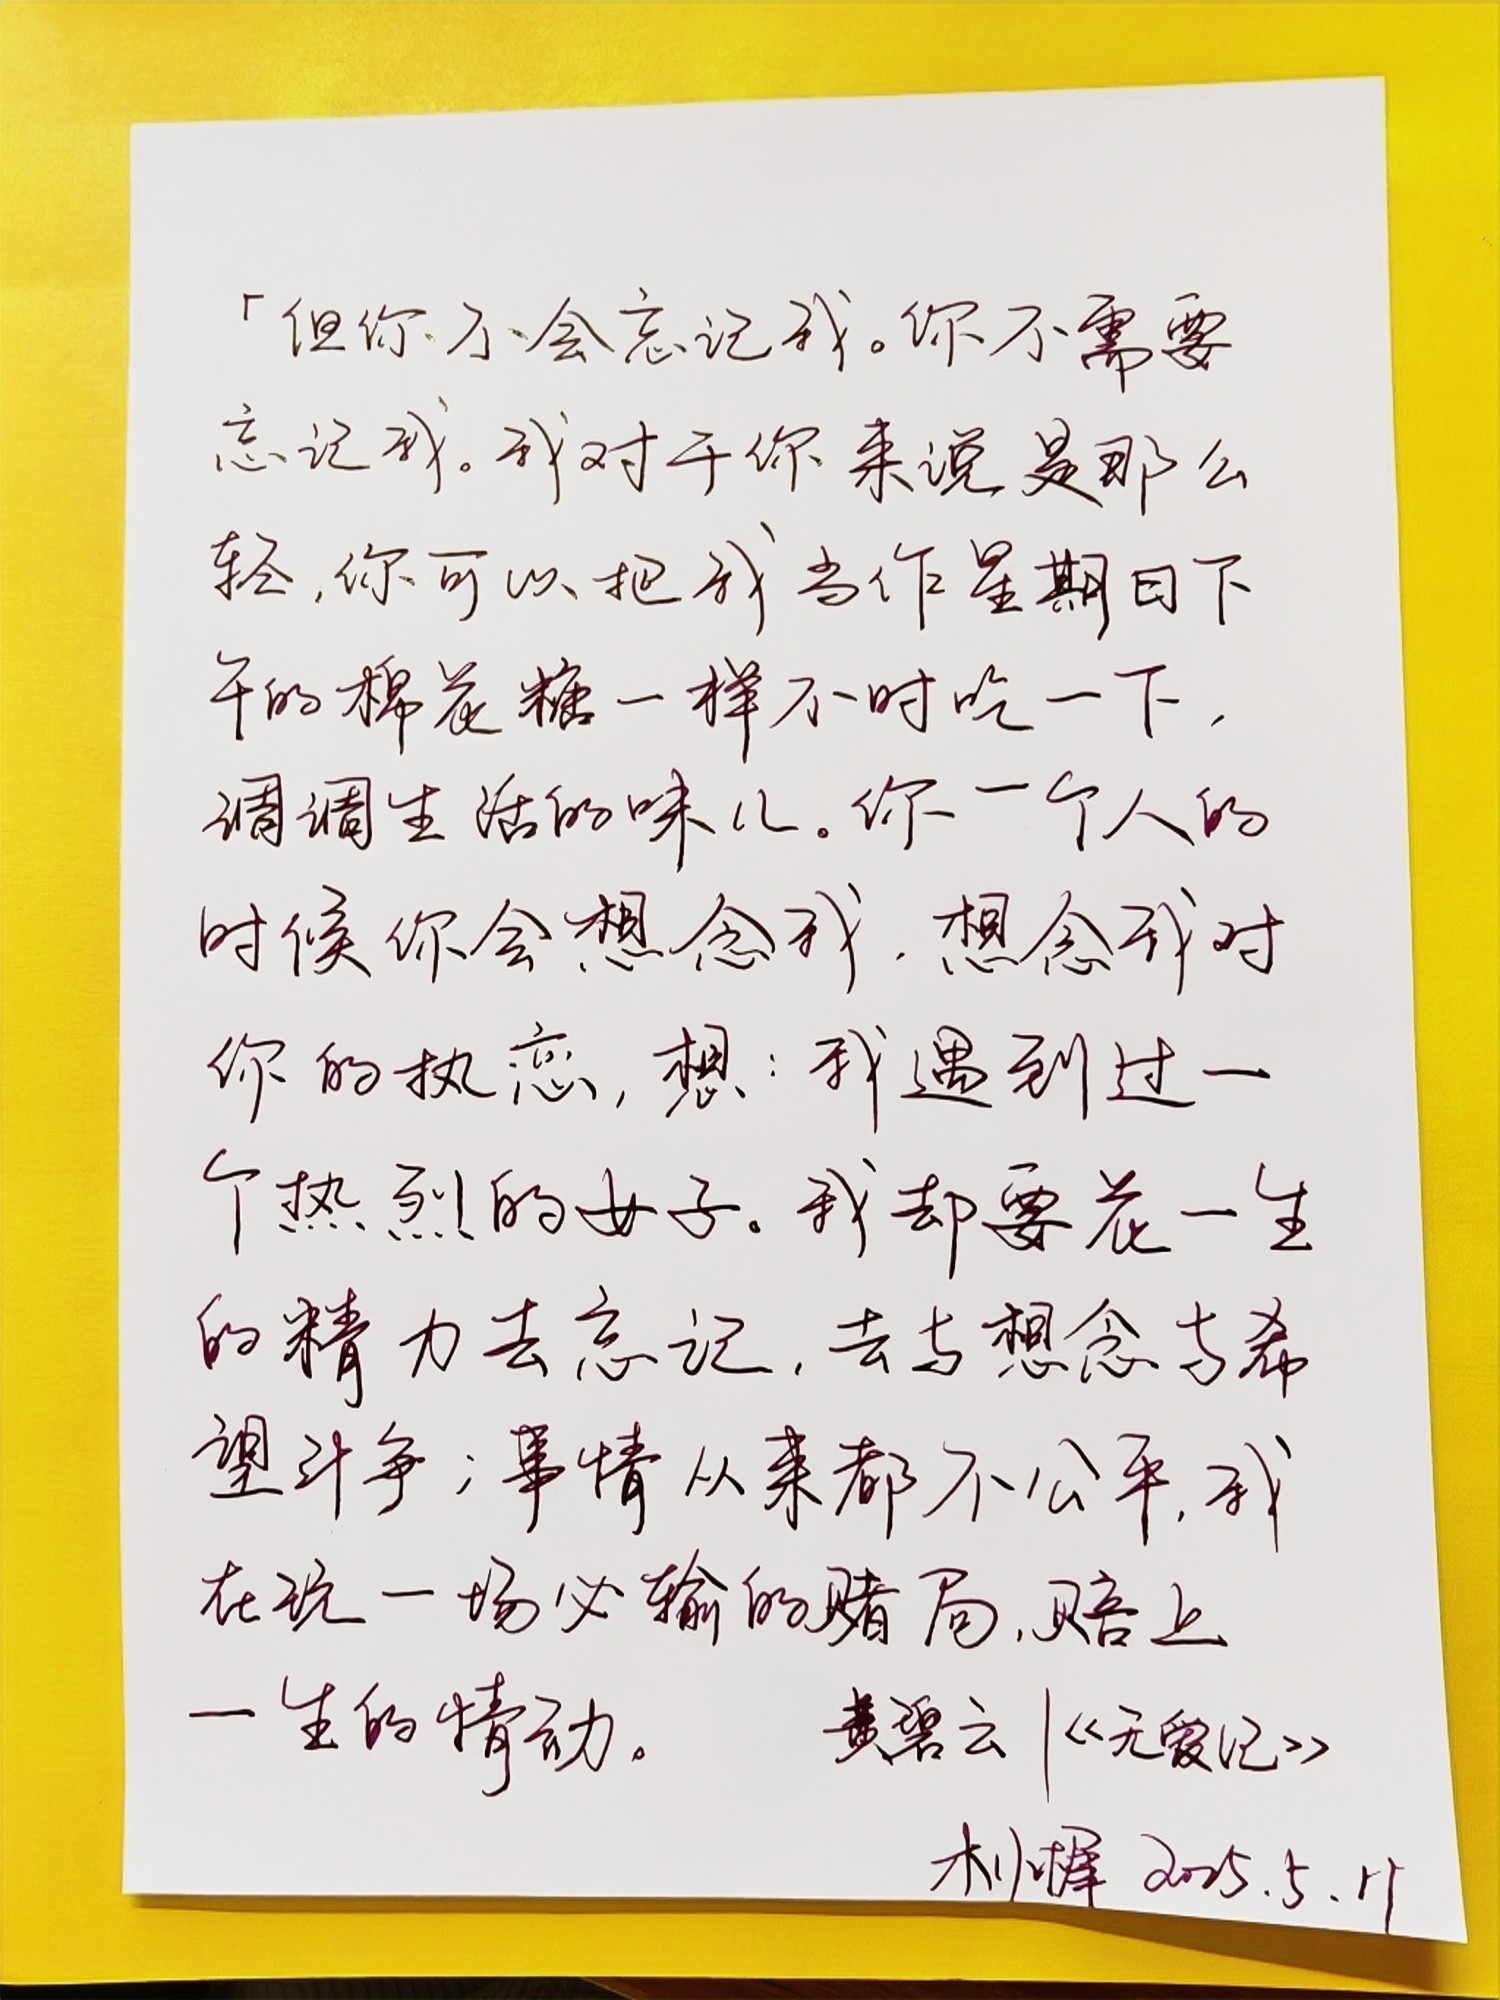 「但你不会忘记我。你不需要
忘记我。我对于你来说是那么
轻,你可以把我当作星期日下
午的棉花糖一样不时吃一下,
调调生活的味儿。你一个人的
时候你会想念我,想念我对
你的执恋,想:我遇到过一
个热烈的女子。我却要花一生
的精力去忘记,去与想念与希
望斗争;事情从来都不公平,我
在玩一场必输的赌局,赔上
一生的情动。 黄碧云|《无爱记》
2025.5.17